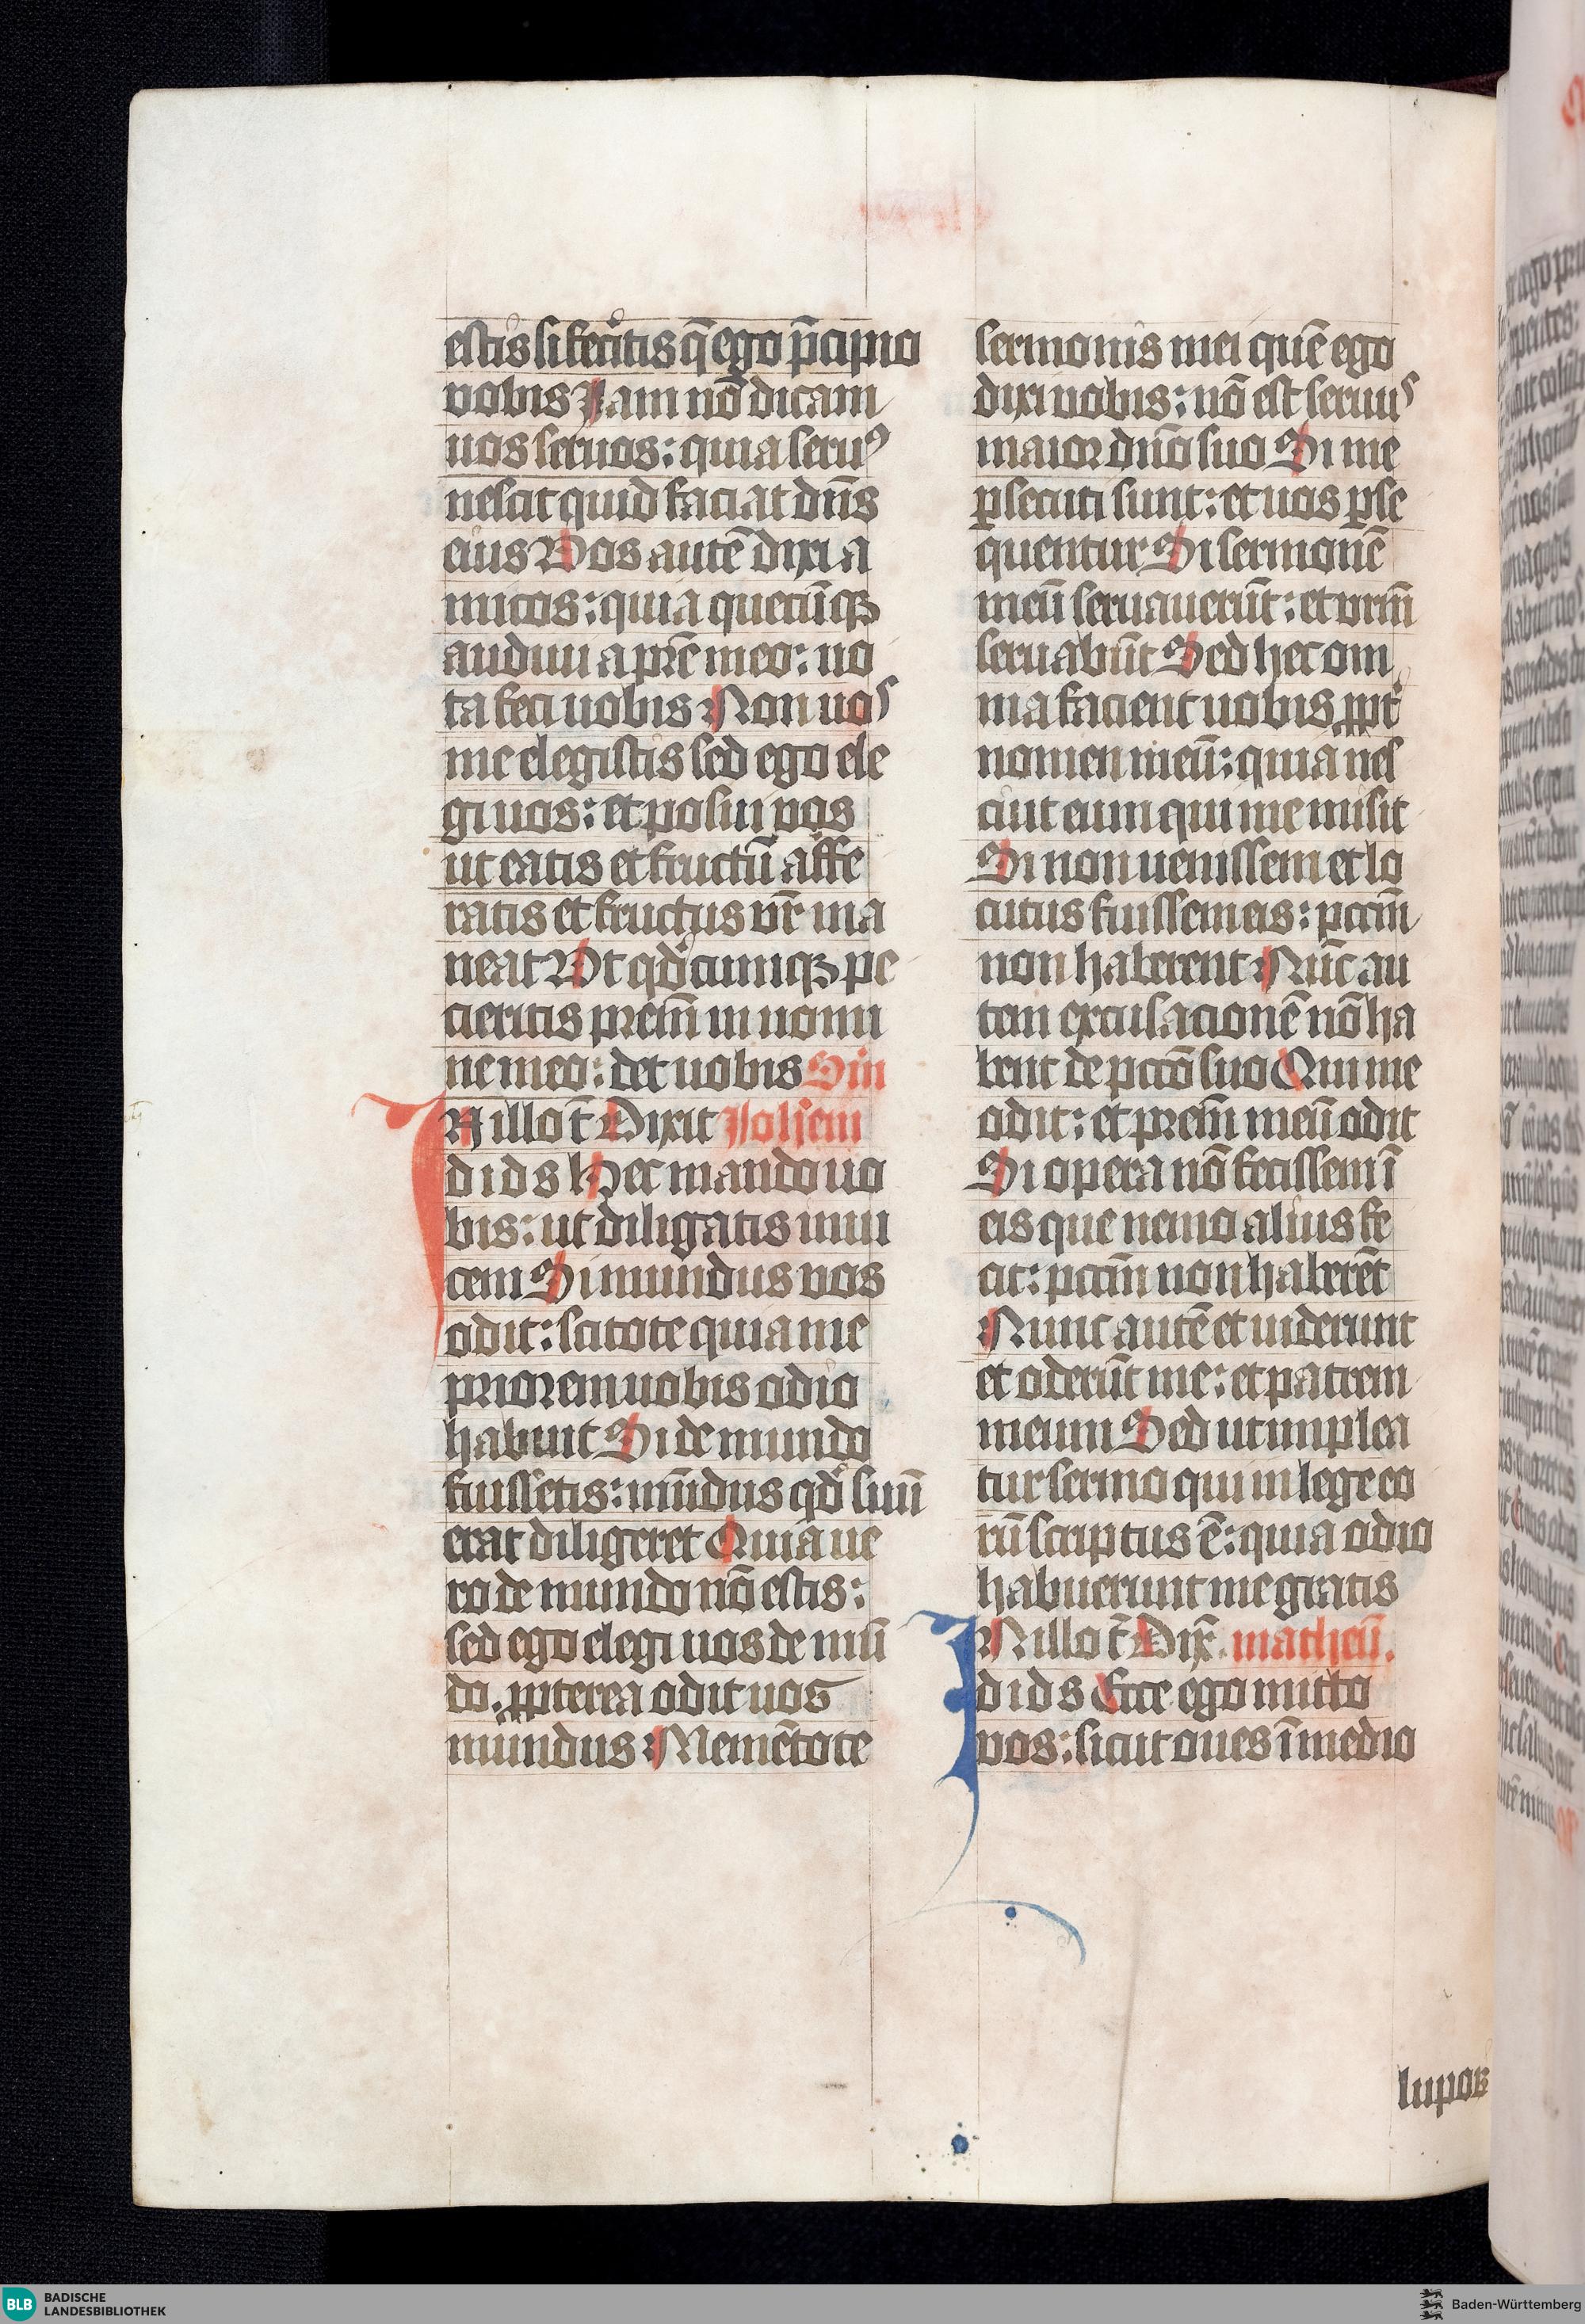 estis si feceritis q̄ ego p̄cipio
vobis Iam nō dicam
uos seruos: quia seruꝰ
nescit quid faciat dn̄s
eius Vos autē dixi a
micos: quia quecūqꝫ
audiui a pr̄e meo: no
ta feci uobis Non uos
me elegistis sed ego ele
gi uos: et posui vos
ut eatis et fructū affe
ratis et fructus vr̄ ma
neat Vt qd̓cumqꝫ pe
cieritis prem̄ in nomi
ne meo: det uobis Sīn
IN illo t̄ Dixit Iohem
d i d s Hec mando uo
bis: ut diligatis inui
cem Si mundus vos
odit: scitote quia me
priorem uobis odio
habuit Si de mundo
fuissetis: mūdus qd̓ suū
erat diligeret Quia ue
ro de mundo nō estis:
sed ego elegi uos de mū
do. ꝓpterea odit uos
mundus Memētote
sermonis mei quē ego
dixi uobis: nō est seruus
maior dn̄o suo Si me
ꝑsecuti sunt: et uos ꝑse
quentur Si sermonē
meū seruauerūt: et vrm̄
seruabūt Sed hec om
nia facient uobis ꝓpt̓
nomen meū: quia nes
ciūt eum qui me misit
Si non uenissem et lo
cutus fuissem eis: pccm̄
non haberent Nūc au
tem excusacionē nō ha
bent de pccō suo Qui me
odit: et prem̄ meū odit
Si opera nō fecissem ī
eis que nemo alius fe
cit: pccm̄ non haberēt
Nunc autē et uiderunt
et oderūt me: et patrem
meum Sed ut implea
tur sermo qui in lege eo
rū scriptus ē: quia odio
habuerunt me gratis
IN illo t̄ Dix̄. matheū.
d i d s Ecce ego mitto
vos: sicut oues ī medio
lupoꝝ
BLB BADISCHE
LANDESBIBLIOTHEK
Baden-Württemberg